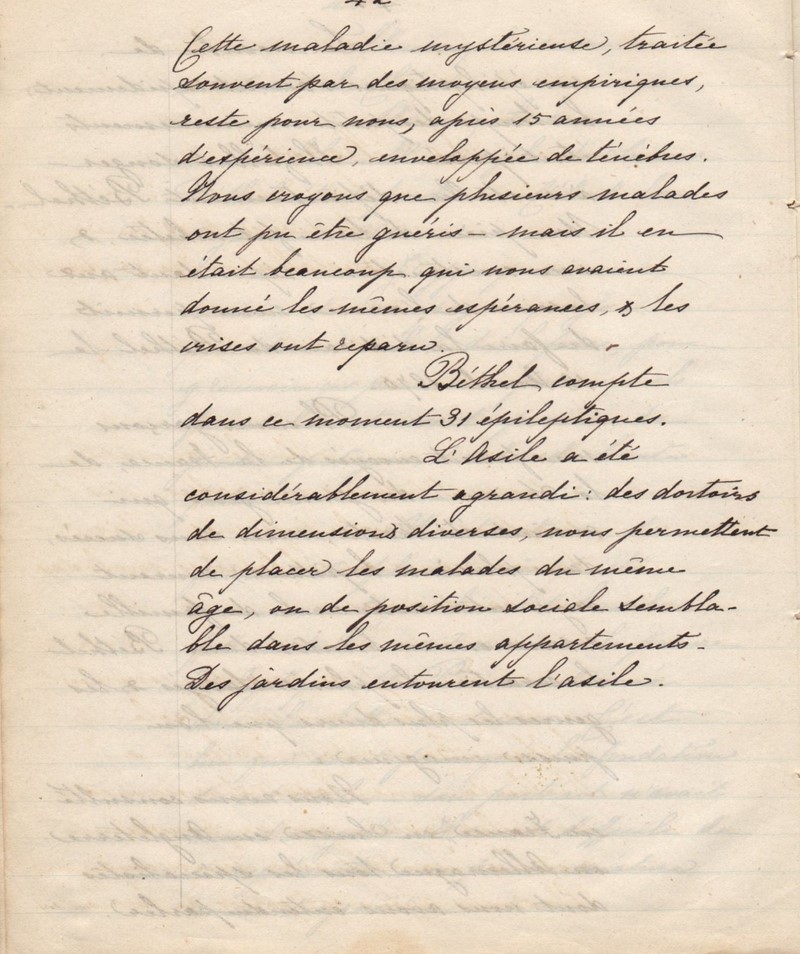 42
Cette maladie mystérieuse, traitée
souvent par des moyens empiriques,
reste pour nous, après 15 années
d'expérience, enveloppée de ténèbres.
Nous croyons que plusieurs malades
ont pu être guéris — mais il en
était beaucoup qui nous avaient
donné les mêmes espérances, & les
crises ont reparu.
Béthel compte
dans ce moment 31 épileptiques.
L'Asile a été
considérablement agrandi : des dortoirs
de dimensions diverses, nous permettent
de placer les malades du même
âge, ou de position sociale sembla-
ble dans les mêmes appartements.
Des jardins entourent l'asile.